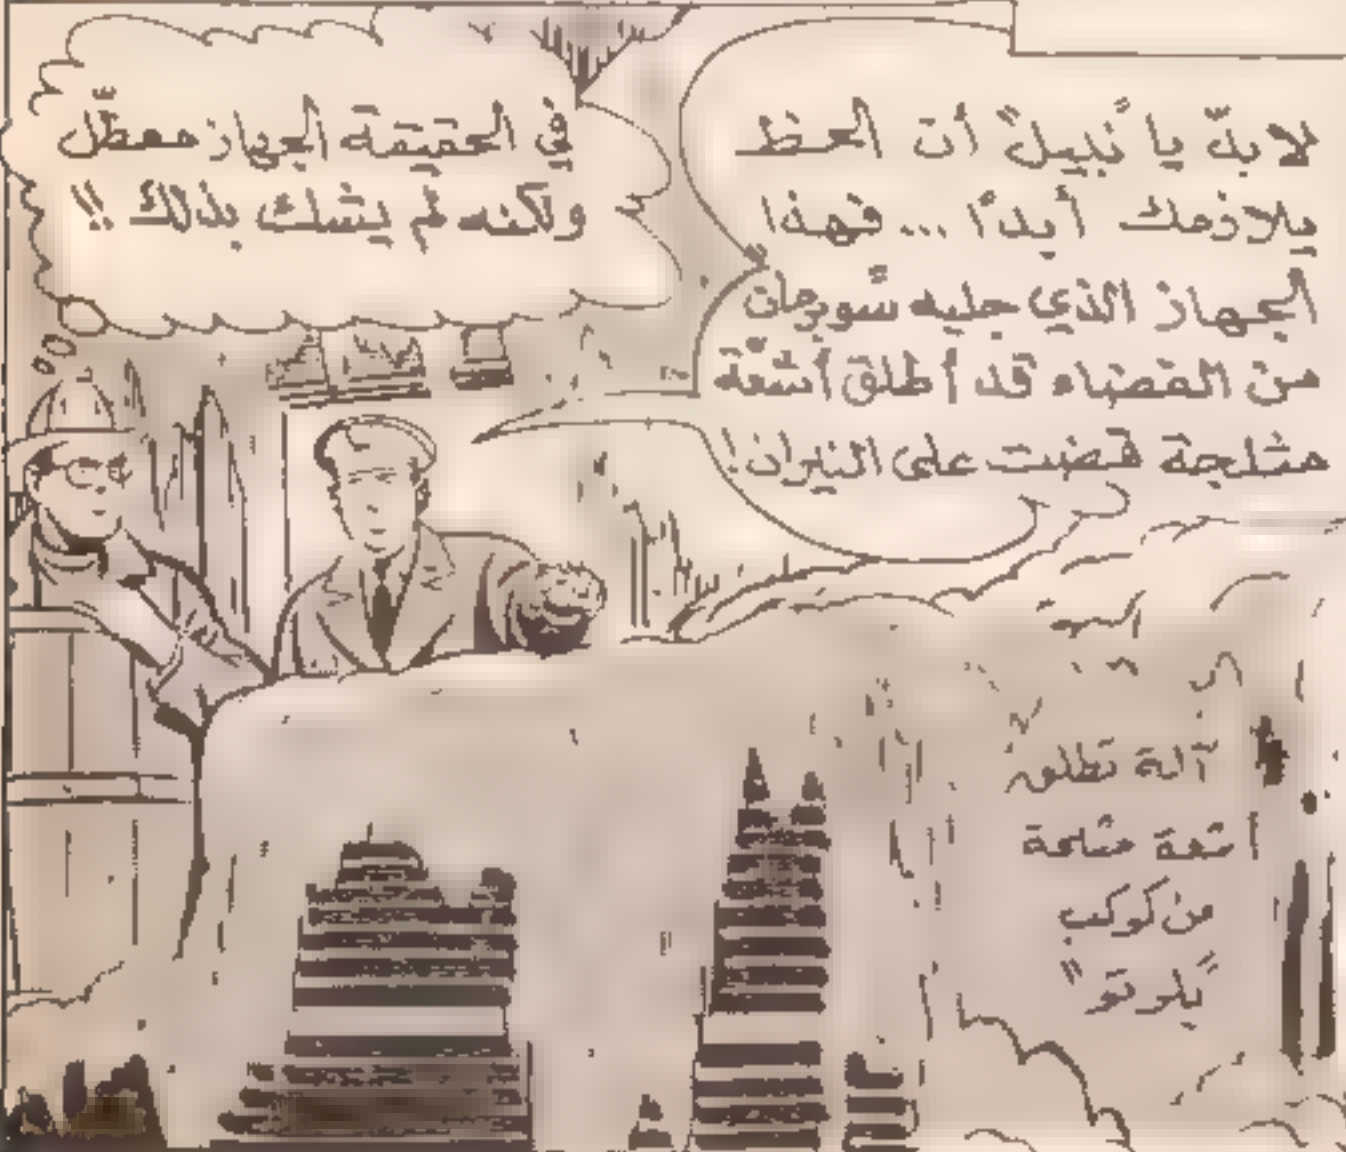 لا بدّ يا "نبيل" أن الحظ
يلازمك أبدًا ... فهذا
الجهاز الذي جلبه "سوبرمان"
من الفضاء قد أطلق أشعّة
مثلجة قضت على النيران!
في الحقيقة الجهاز معطّل
ولكنه لم يشك بذلك !!
آلة تطلق
أشعة مثلجة
من كوكب
"بلوتو"